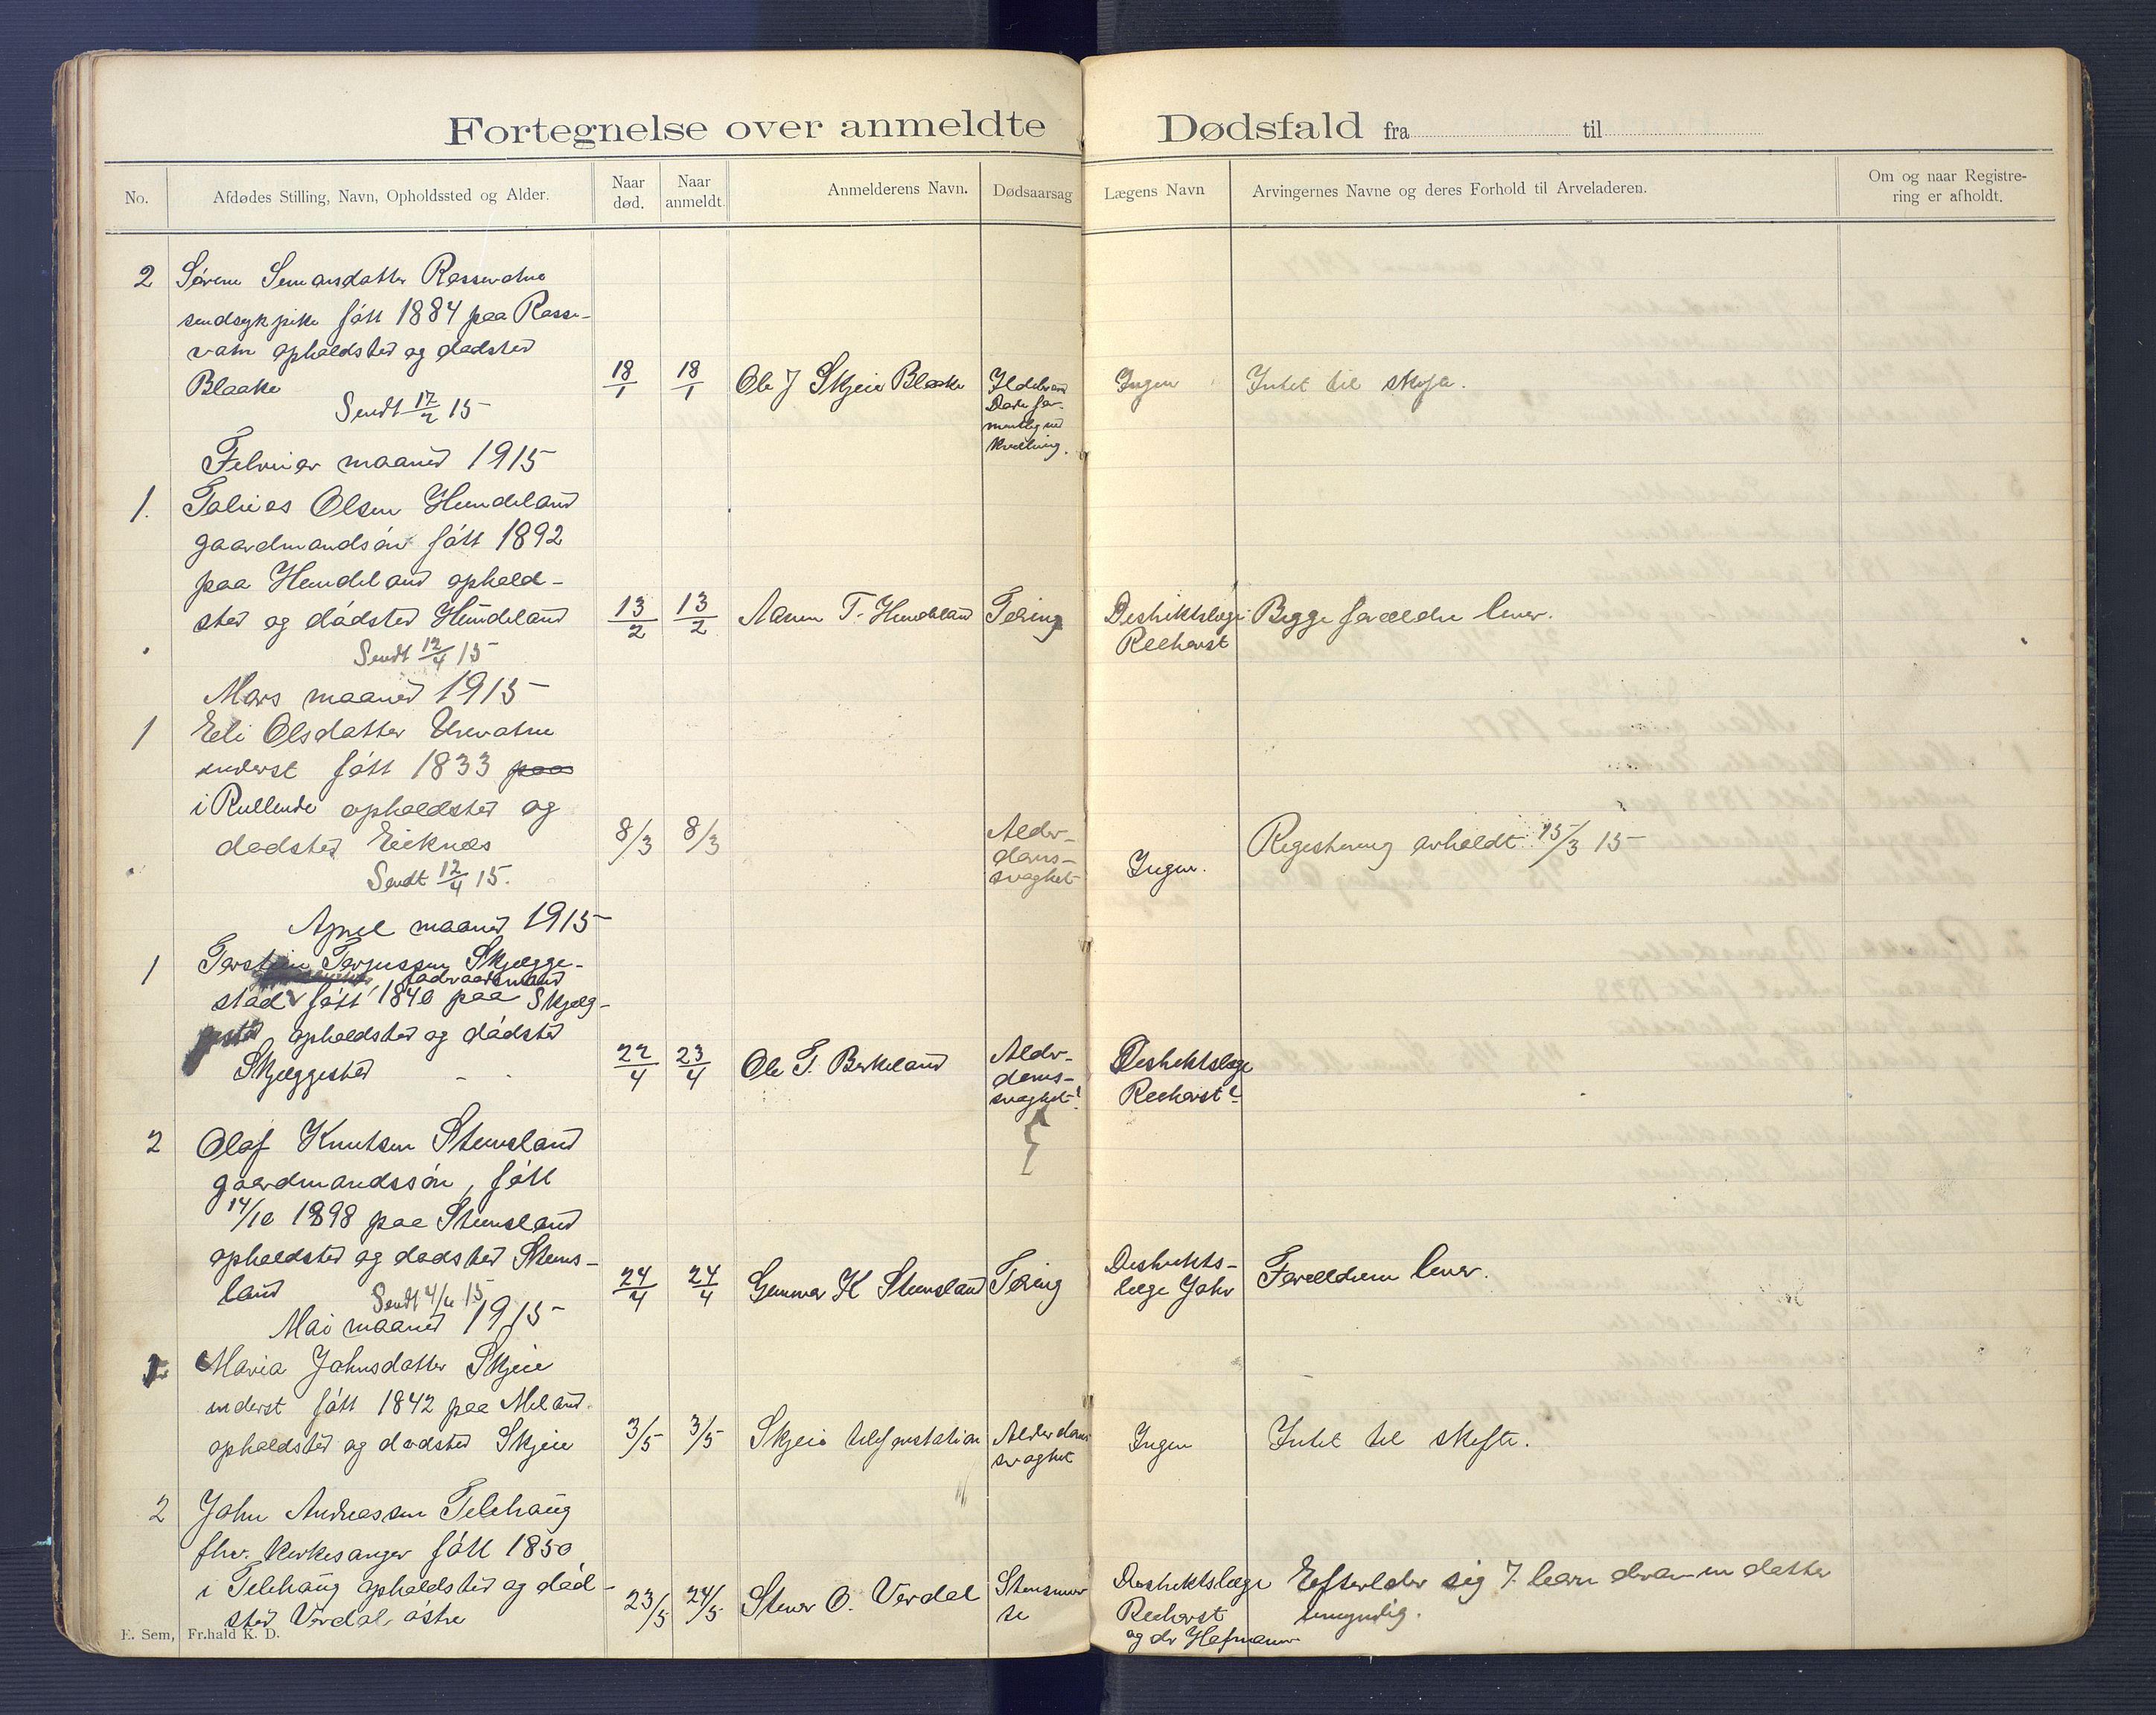 Fortegnelse over anmeldte Dødsfald fra til
No. Afdødes Stilling, Navn, Opholdssted og Alder. Naar død. Naar anmeldt. Anmelderens Navn. Dødsaarsag Lægens Navn Arvingernes Navne og deres Forhold til Arveladeren. Om og naar Registrering er afholdt.
2 Sørine Simonsdatter Rossevatne
sindsyk pike født 1884 paa Rosse-
vatn opholdsted og dødsted
Blaake 18/1 18/1 Ole J Skjeie Blaake Ingen Intet til skifte.
Sendt 12/2 15
kvælning.
Februar maaned 1915
1. Tobias Olsen Hundeland
gaardmandsøn født 1892
paa Hundeland ophold-
sted og dødsted Hundeland 13/2 13/2 T. Hundeland Tæring Destriktslæge Begge forældre lever.
Reehorst
Sendt 12/4 15
Mars maaned 1915
1 Eli Olsdatter Urevatne
inderst født 1833 paa
i opholdsted og
dødsted Eieknes 8/3 8/3 Alder-
doms-
svaghet Ingen. Registrering avholdt 15/3 15
Sendt 12/4 15.
April maaned 1915
1 Terstein Terjussen Skjegge-
stad født 1840 paa Skjeg-
gested opholdsted og dødsted
Skjeggested 22/4 23/4 Ole T. Birkeland Alder-
doms-
svaghet! Destriktslæge
Reehorst
2 Olaf Knutsen Stensland
gaardmandssøn, født
14/10 1898 paa Stensland
opholdsted og dødsted Stens-
land 24/4 24/4 Gunnar K Stensland Tæring Destrikts-
læge Jahr Forældrene lever.
Sendt 4/6 15
Mai maaned 1915
1 Maria Johnsdatter Skjeie
inderst født 1842 paa Meland.
opholdsted og dødsted Skjeie 3/5 3/5 Skjeie telefonstation Alderdoms
svaghet Ingen Intet til skifte.
2 John Andreassen Telehaug
fhv. kirkesanger født 1850
i Telehaug opholdsted og død-
sted Verdal østre 23/5 24/5 Stener O. Verdal Destriktslæge
Reehorst
og dr Hofmann Efterlader sig 7 barn derav en datter
umyndig.
E. Sem, Fr.hald K. D.